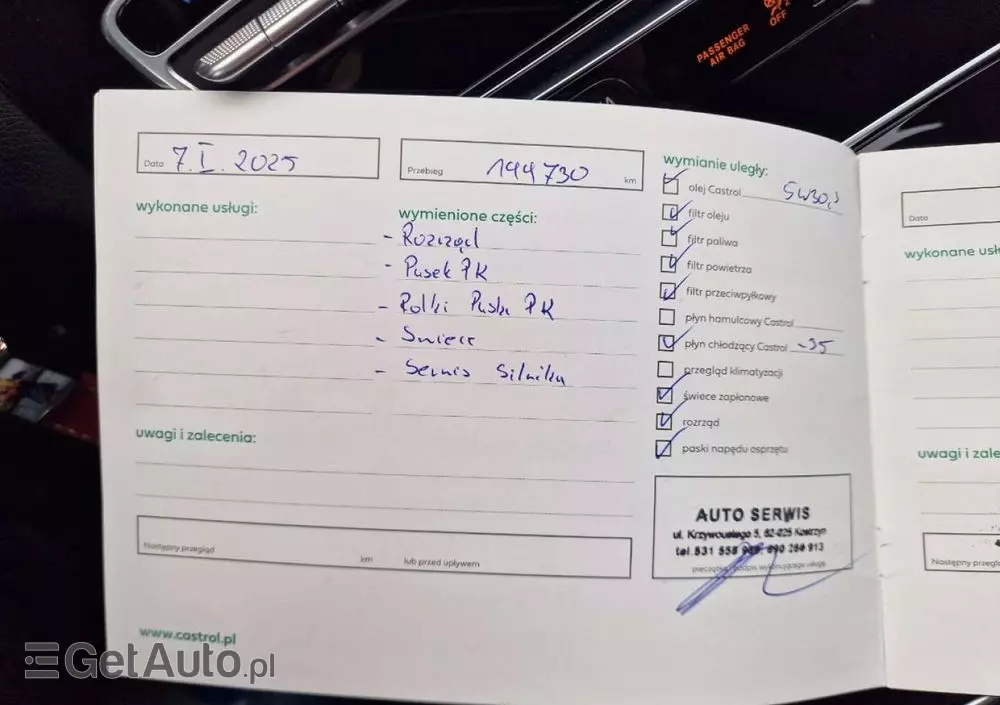 PASSENGER
AIR BAG
OFF
Data 7.I.2025
Przebieg 144730 km
wykonane usługi:
wymienione części:
- Rozrząd
- Pasek PK
- Rolki Paska PK
- Świece
- Serwis Silnika
uwagi i zalecenia:
Następny przegląd km lub przed upływem
www.castrol.pl
wymianie uległy:
olej Castrol 5W30
filtr oleju
filtr paliwa
filtr powietrza
filtr przeciwpyłkowy
płyn hamulcowy Castrol
płyn chłodzący Castrol -35
przegląd klimatyzacji
świece zapłonowe
rozrząd
paski napędu osprzętu
AUTO SERWIS
ul. Krzywoustego 5, 62-025 Kostrzyn
tel. 531 558
pieczątka i podpis wykonującego usługę
Data
wykonane usłu
uwagi i zale
Następny przeglą
GetAuto.pl